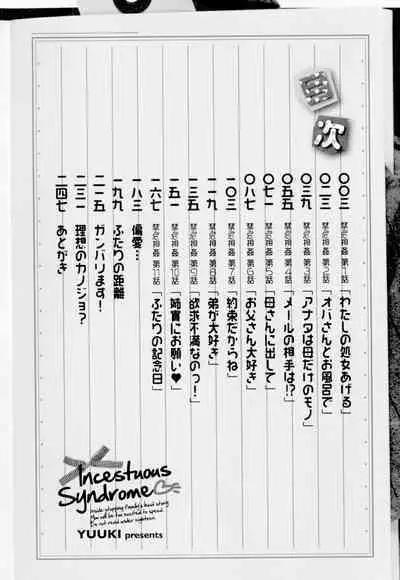 目次
〇〇三 禁忌相姦 第1話「わたしの処女あげる」
〇二三 禁忌相姦 第2話「オバさんとお風呂で」
〇三九 禁忌相姦 第3話「アナタは母だけのモノ」
〇五五 禁忌相姦 第4話「メールの相手は!?」
〇七一 禁忌相姦 第5話「母さんに出して」
〇八七 禁忌相姦 第6話「お父さん大好き」
一〇三 禁忌相姦 第7話「約束だからね」
一一九 禁忌相姦 第8話「弟が大好き」
一三五 禁忌相姦 第9話「欲求不満なのっ!」
一五一 禁忌相姦 第10話「姉貴にお願い♥」
一六七 禁忌相姦 第11話「ふたりの記念日」
一八三 偏愛…
一九九 ふたりの距離
二一五 ガンバリます!
二三一 理想のカノジョ?
二四七 あとがき
Incestuous
Syndrome
story
You will be too excited to
not read under eighteen.
YUUKI presents